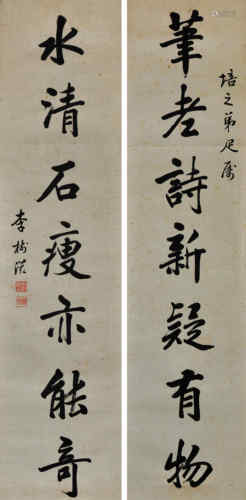 筆老詩新疑有物
培之弟足属
水清石瘦亦能奇
李樹滋